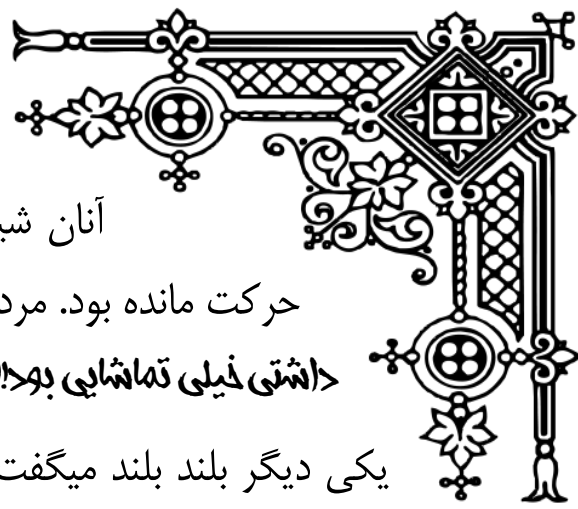 آنان
حرکت مانده بود. مرد
داشتی خیلی تماشایی بود!
یکی دیگر بلند بلند میگفت